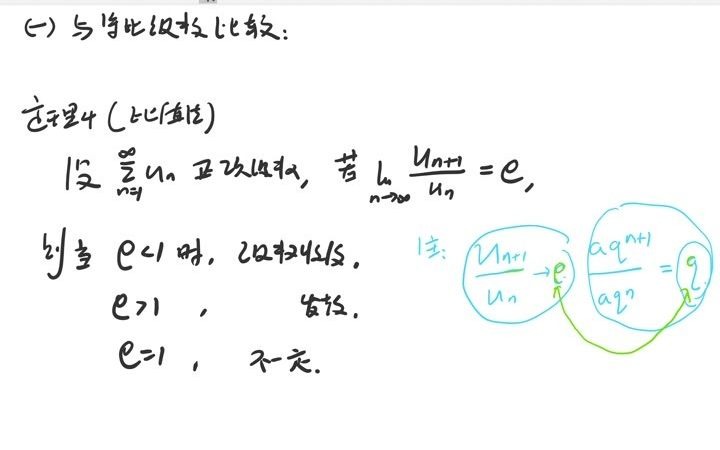 (一) 与等比级数比较:
定理4 (比值法)
设 ∞∑n=1 un 正项级数, 若 lim n→∞ un+1/un = ρ,
则当 ρ<1 时, 级数收敛.
ρ>1 , 发散.
ρ=1 , 不一定.
注: un+1/un → ρ aqn+1/aqn = q